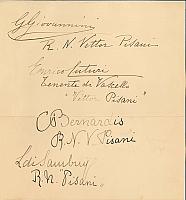 G. Giovannini
R. N. Vettor Pisani
Enrico
Tenente di Vascello
"Vettor Pisani"
C Bernardis
R. N. V. Pisani
R. N. Pisani"